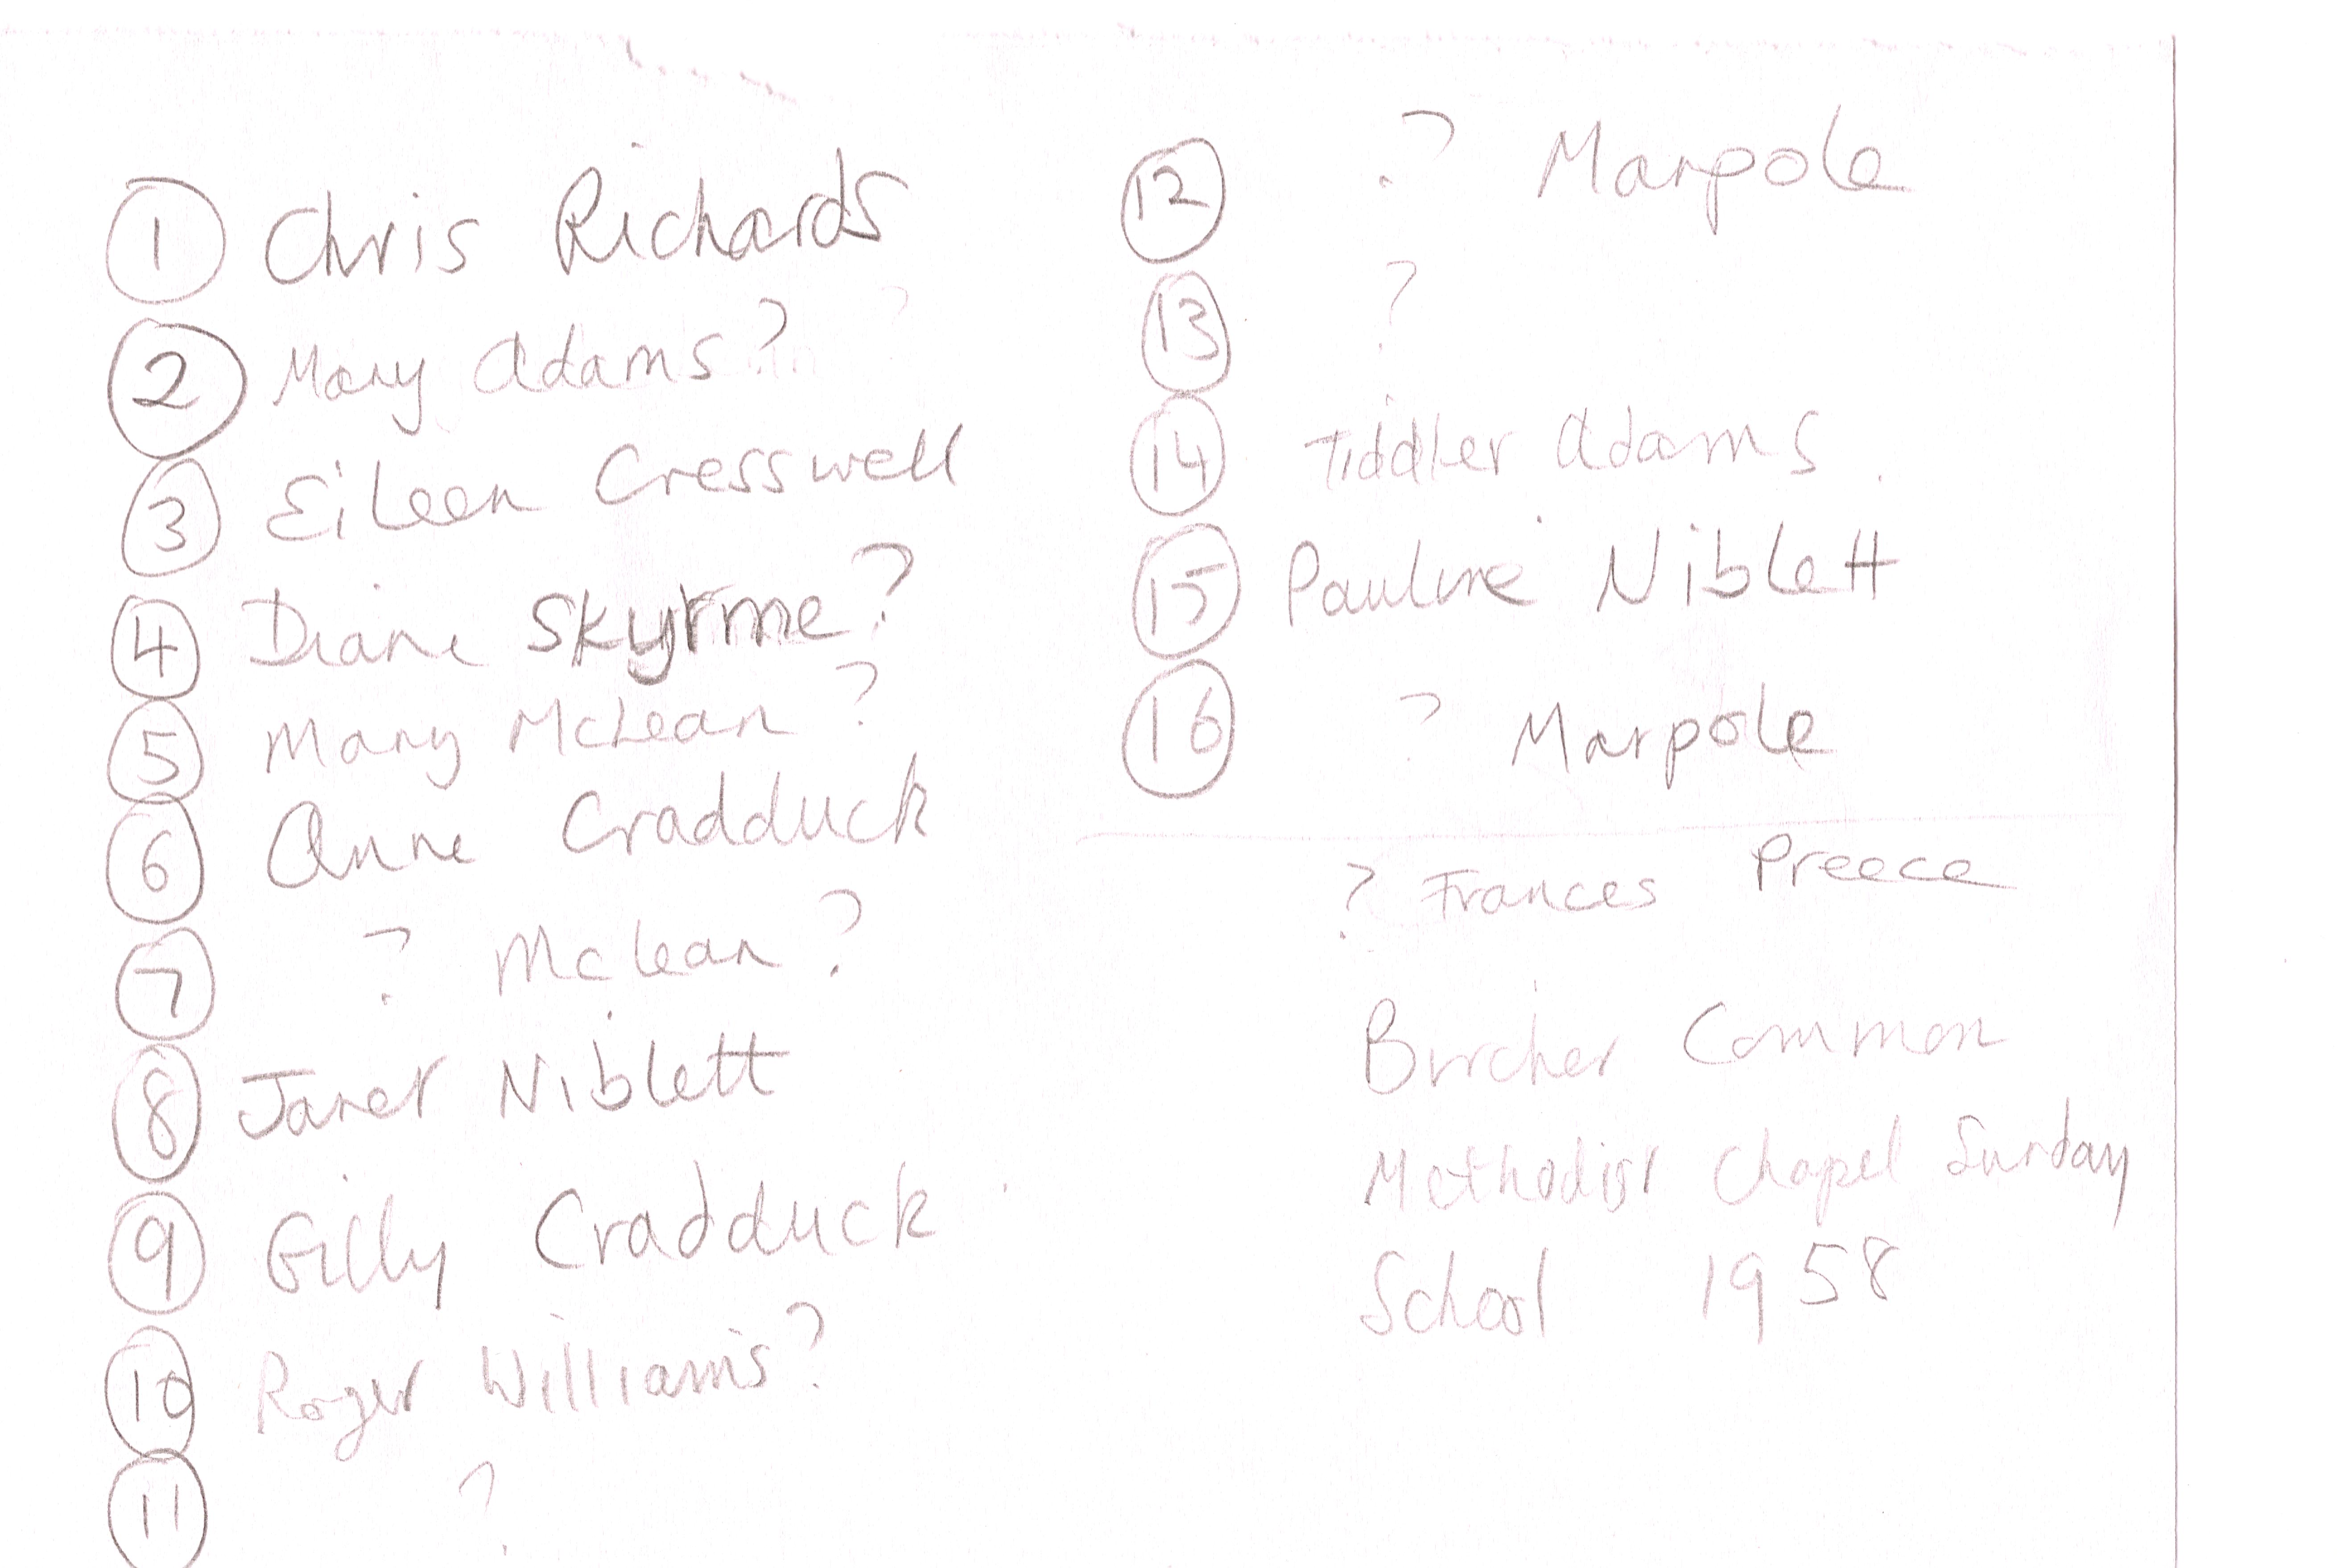 1 Chris Richards
2 Mary Adams?
3 Eileen Cresswell
4 Diane Skyrme?
5 Mary McLean?
6 Anne Cradduck
7 ? McLean?
8 Janet Niblett
9 Gilly Cradduck
10 Roger Williams?
11 ?
12 ? Marpole
13 ?
14 Tiddler Adams
15 Pauline Niblett
16 ? Marpole
? Frances Preece
Bircher Common
Methodist Chapel Sunday
School 1958